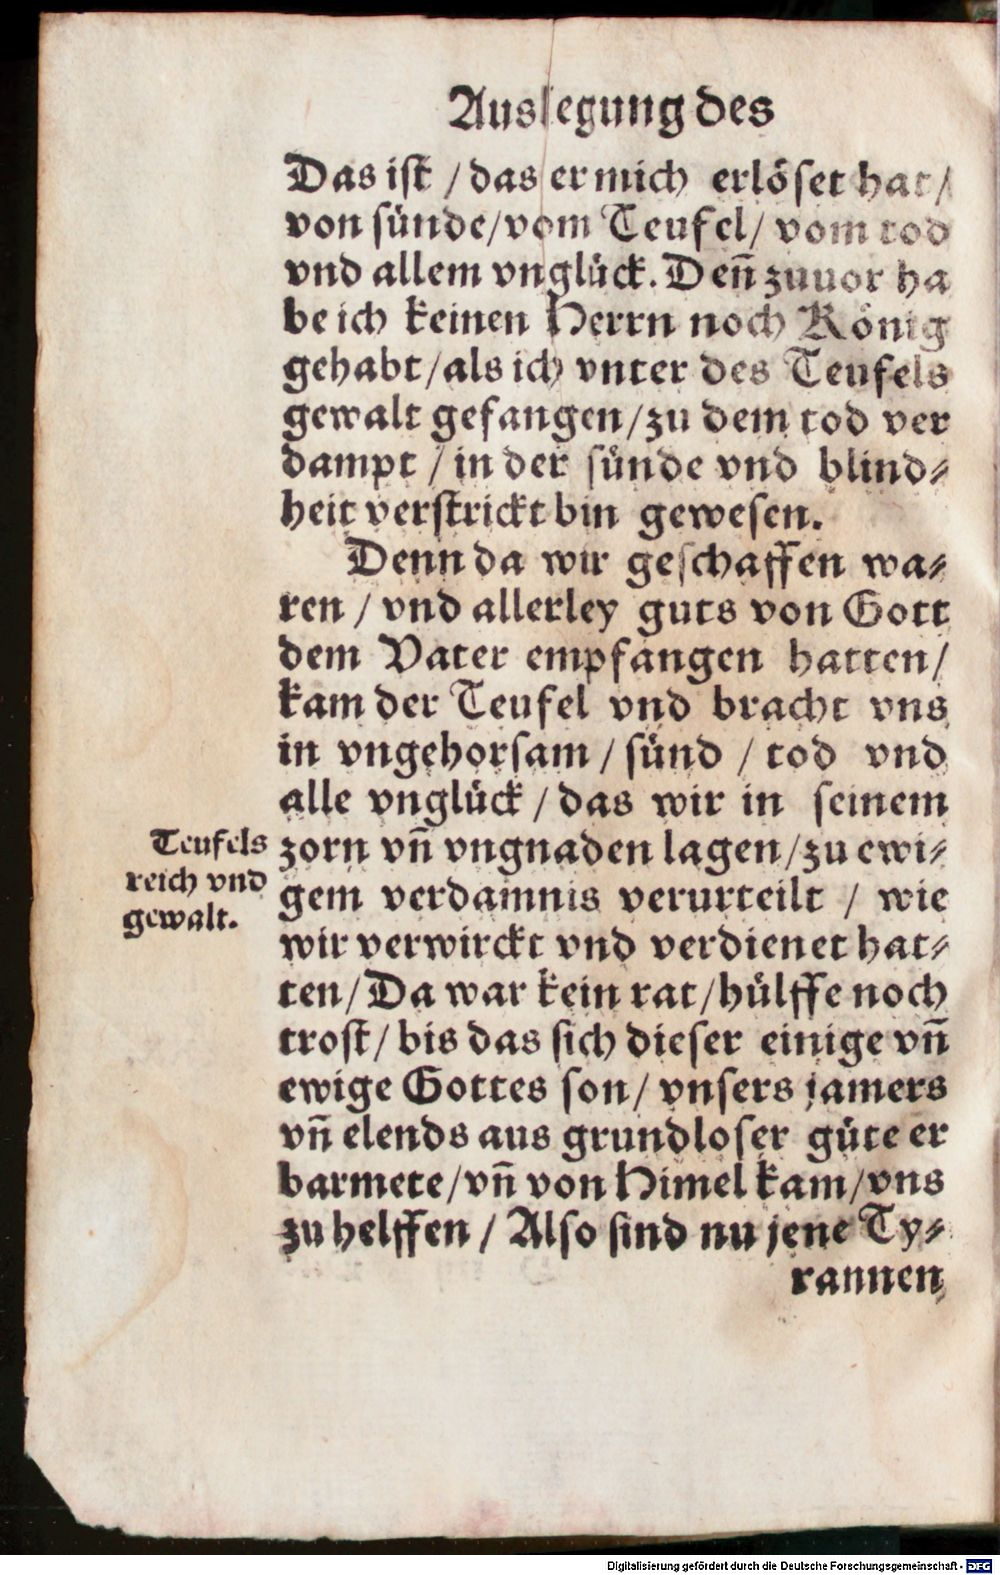 Auslegung des
Das ist / das er mich erlöset hat /
von sünde / vom Teufel / vom tod
vnd allem vnglück. Deñ zuuor ha
be ich keinen Herrn noch König
gehabt / als ich vnter des Teufels
gewalt gefangen / zu dem tod ver
dampt / in der sünde vnd blind⸗
heit verstrickt bin gewesen.
Denn da wir geschaffen wa⸗
ren / vnd allerley guts von Gott
dem Vater empfangen hatten /
kam der Teufel vnd bracht vns
in vngehorsam / sünd / tod vnd
alle vnglück / das wir in seinem
zorn vñ vngnaden lagen / zu ewi⸗
gem verdamnis verurteilt / wie
wir verwirckt vnd verdienet hat⸗
ten / Da war kein rat / hülffe noch
trost / bis das sich dieser einige vñ
ewige Gottes son / vnsers jamers
vñ elends aus grundloser güte er
barmete / vñ von Himel kam / vns
zu helffen / Also sind nu jene Ty⸗
rannen
Teufels
reich vnd
gewalt.
Digitalisierung gefördert durch die Deutsche Forschungsgemeinschaft - DFG